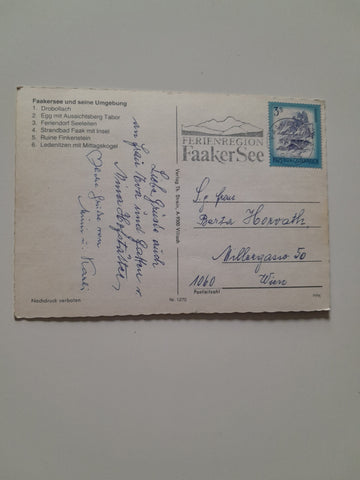 Faakersee und seine Umgebung
1. Drobollach
2. Egg mit Aussichtsberg Tabor
3. Feriendorf Seeleiten
4. Strandbad Faak mit Insel
5. Ruine Finkenstein
6. Ledenitzen mit Mittagskogel
Liebe Grüße auch
an Frau Eva und Gatten v.
Nina Hofstätter
Viele Grüße von
Mimi u. Karli
Nachdruck verboten
Verlag Th. Drain, A-9500 Villach
Nr. 1270
FERIENREGION
Faaker See
3 S
REPUBLIK ÖSTERREICH
S.g. Frau
Berta Horvath
Millergasse 50
1060 Wien
Postleitzahl